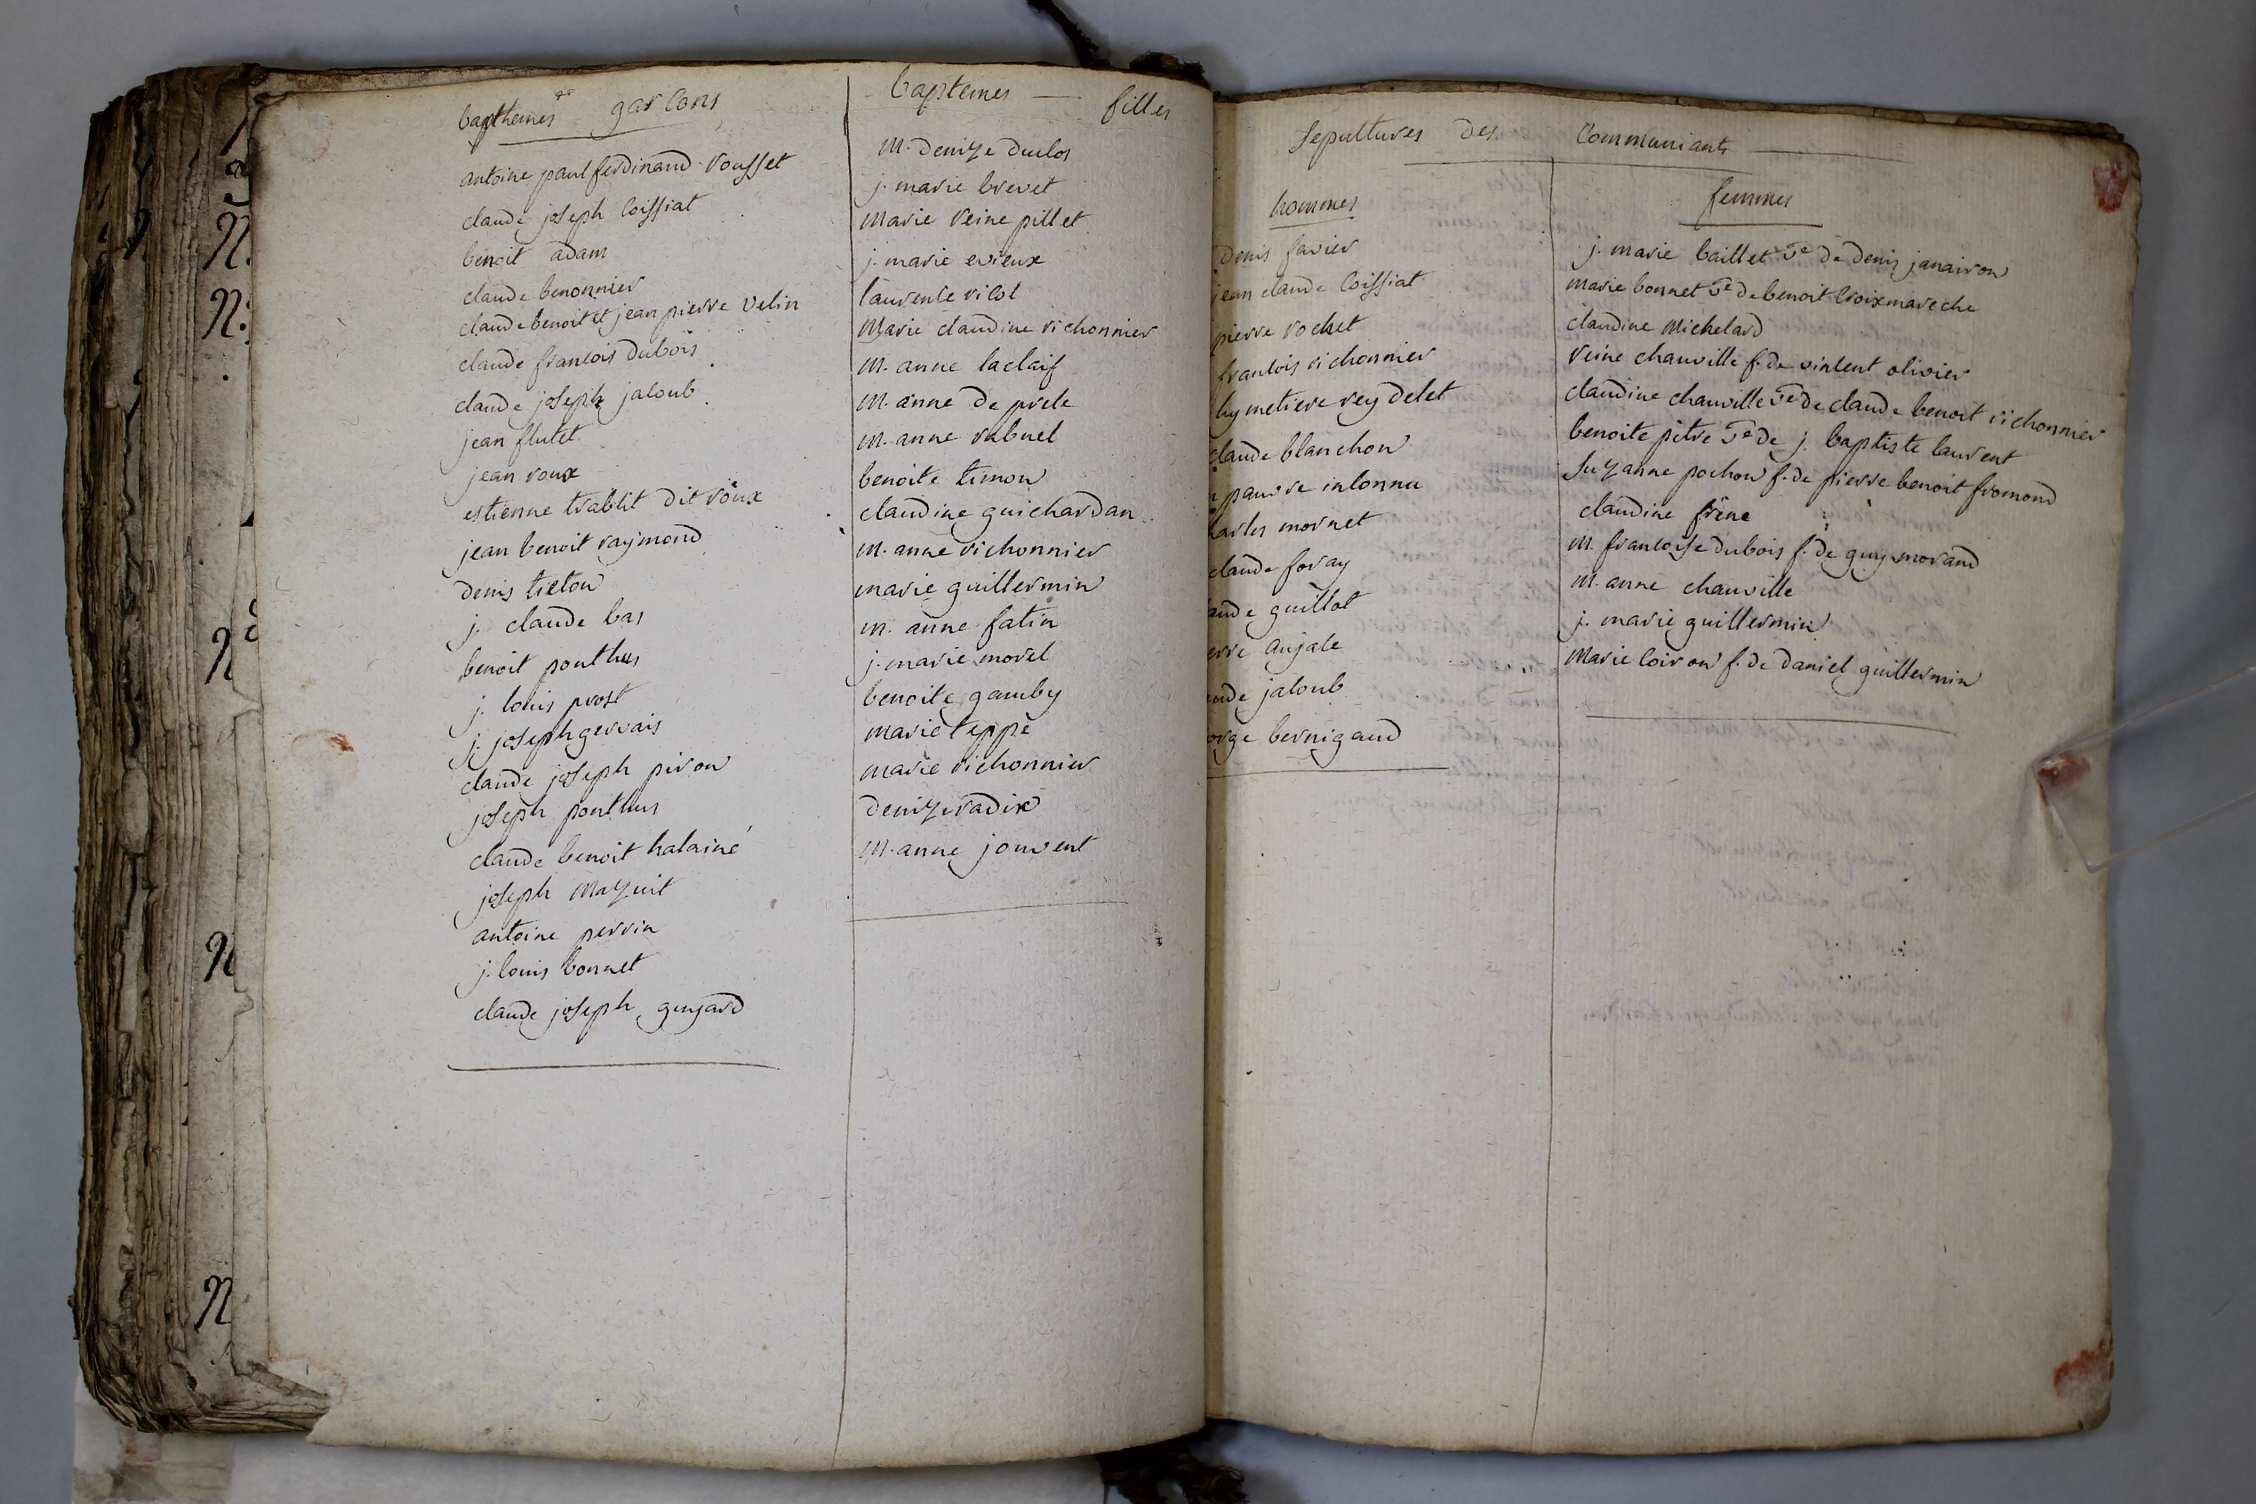 bapthemes garcons
antoine paul ferdinand rousset
claude joseph coissiat
benoit adam
claude benonnier
claude benoit et jean pierre velin
claude francois dubois
claude joseph jaloub
jean flutet
jean roux
estienne trablit dit roux
jean benoit raymond
denis tieton
j. claude bas
benoit ponthus
j. louis prost
j. joseph gervais
claude joseph piron
joseph ponthus
claude benoit halainé
joseph mazuit
antoine perrin
j. louis bonnet
claude joseph guyard
baptemes filles
m. denize duclos
j. marie brevet
marie reine pillet
j. marie evieux
laurence vicot
marie claudine richonnier
m. anne laclaif
m. anne de prele
m. anne rabuel
benoite timon
claudine guichardan
m. anne richonnier
marie guillermin
m. anne fatin
j. marie morel
benoite gamby
marie teppe
marie richonnier
denize radix
m. anne jouvent
Sepultures des Communiants
hommes
denis favier
jean claude coissiat
pierre rochet
francois richonnier
hymetiere reydelet
claude blanchon
pauvre inconnu
charles mornet
claude foray
aude guillot
erre aujale
aude jaloub
orge bernigaud
femmes
j. marie baillet ve de denis janairon
marie bonnet ve de benoit croixmareche
claudine michelard
reine chauville f. de vincent olivier
claudine chauville ve de claude benoit richonnier
benoite pitre ve de j. baptiste laurent
Suzanne pochon f. de pierre benoit fromond
claudine frene
m. francoise dubois f. de guy morand
m. anne chauville
j. marie guillermin
Marie loiron f. de daniel guillermin